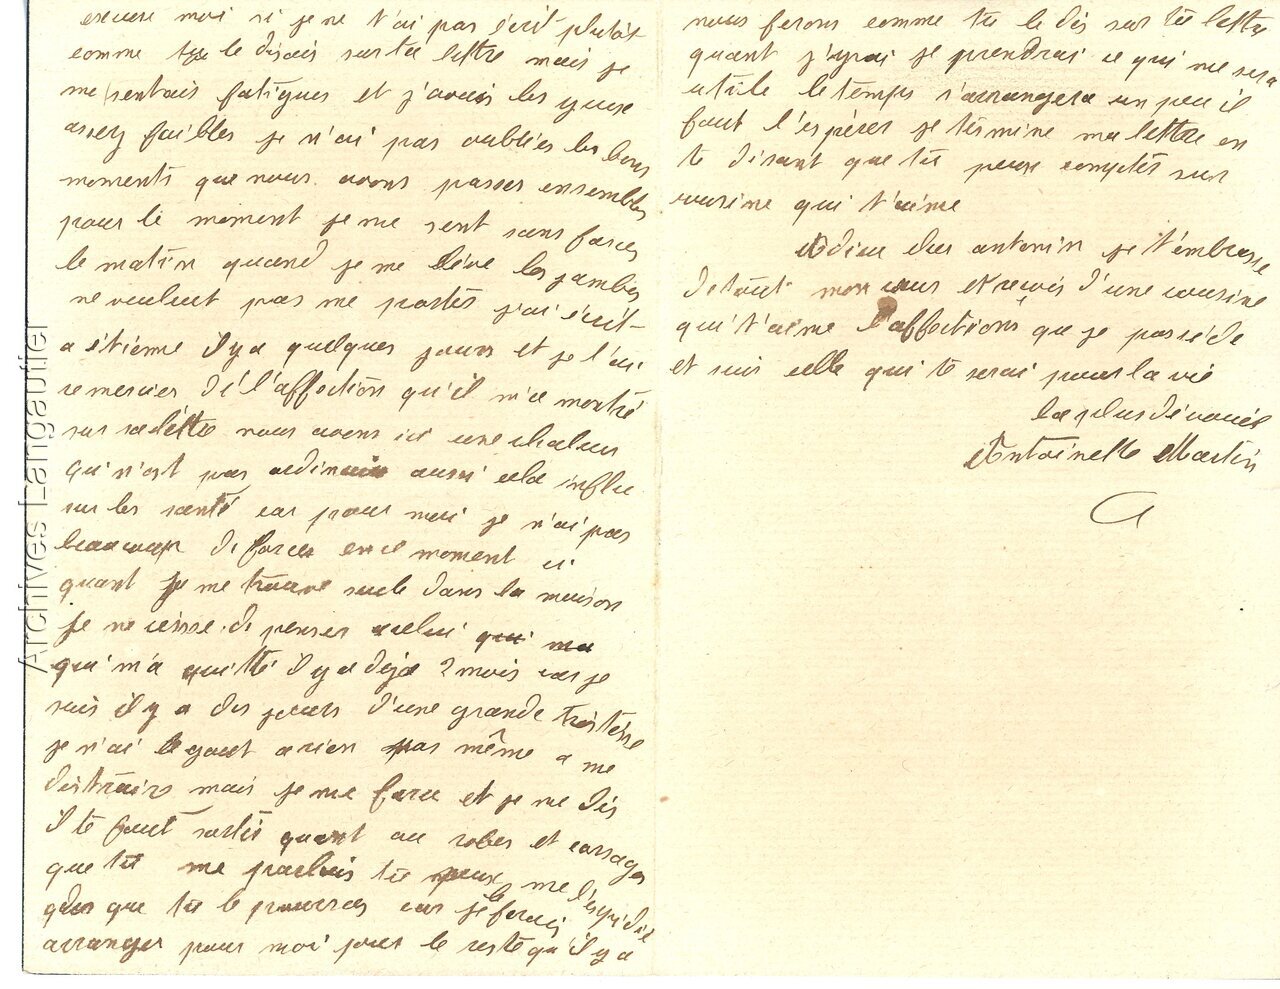 excuse moi si je ne t'ai pas écrit plutôt
comme tu le disais sur ta lettre mais je
me sentais fatigues et j'avais les yeux
assez faibles je n'ai pas oubliés les bons
moments que nous avons passer ensembles
pour le moment je me sent sans forces
le matin quand je me lève les jambes
ne veulent pas me portés j'ai écrit
a étienne il y a quelques jours et je l'ai
remercier dé l'affection qu'il m'a montré
sur sa léttre nous avons ici une chaleur
qui n'est pas aussi cela influ
sur les santé car pour moi je n'ai pas
beaucoup de forces en ce moment ci
quant je me trouve seule dans la maison
je ne cesse de penser a celui qui ma
qui m'a quitté il y a déja 2 mois car je
suis il y a des jours d'une grande tristésse
je n'ai le gout a rien pas même a me
distraire mais je me force et je me dis
il te faut sortir quant au robes et corsages
que tu me parlais tu peux me l'éxpidié
que tu le pourras car je le ferais
arranger pour moi pour le reste qu'il y a
nous ferons comme tu le dis sur ta lettre
quant j'yrai je prendrai ce qui me sera
utile le temps s'arrangera un peu il
faut l'espérer je termine ma lettre en
te disant que tu peux comptés sur
cousine qui t'aime
Adieu cher antonin je t'embrasse
de tout mon cœur et reçois d'une cousine
qui t'aime l'affections que je possède
et suis celle qui te serai pour la vie
la plus dévouée
Antoinette Martin
Archives Langautier